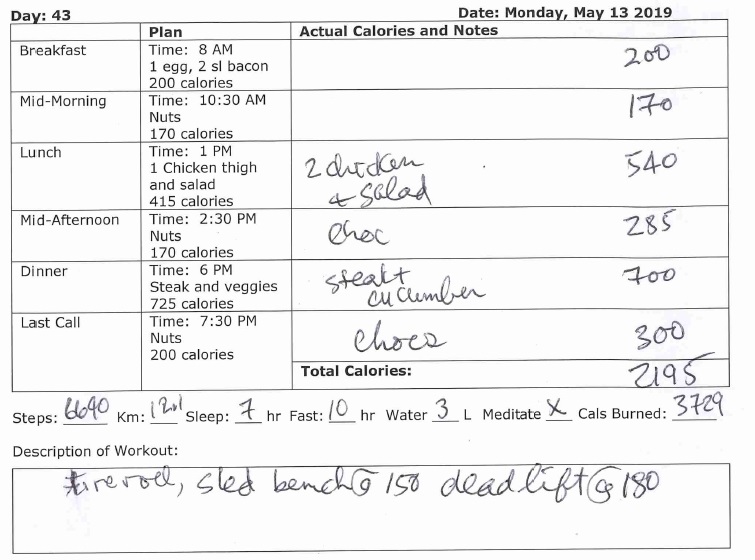 Day: 43 Date: Monday, May 13 2019
Plan Actual Calories and Notes
Breakfast Time: 8 AM 200
1 egg, 2 sl bacon
200 calories
Mid-Morning Time: 10:30 AM 170
Nuts
170 calories
Lunch Time: 1 PM 2 chicken 540
1 Chicken thigh + salad
and salad
415 calories
Mid-Afternoon Time: 2:30 PM choc 285
Nuts
170 calories
Dinner Time: 6 PM steak + 700
Steak and veggies cucumber
725 calories
Last Call Time: 7:30 PM chocs 300
Nuts
200 calories
Total Calories: 2195
Steps: 6690 Km: Sleep: 7 hr Fast: 10 hr Water 3 L Meditate X Cals Burned: 3729
Description of Workout:
sled bench @ 150 deadlift @ 180